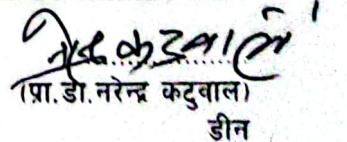 (प्रा.डा.नरेन्द्र कटुवाल)
डीन